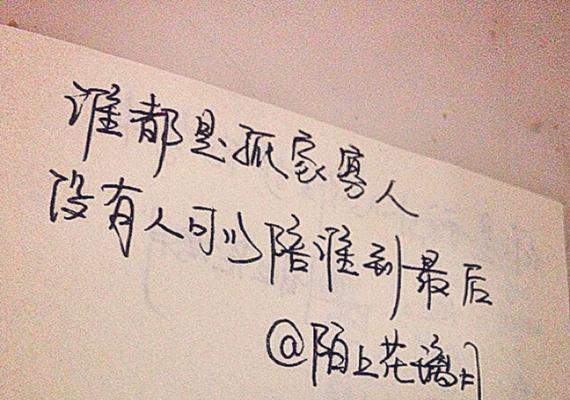 谁都是孤家寡人
没有人可以陪谁到最后
@陌上花璃月